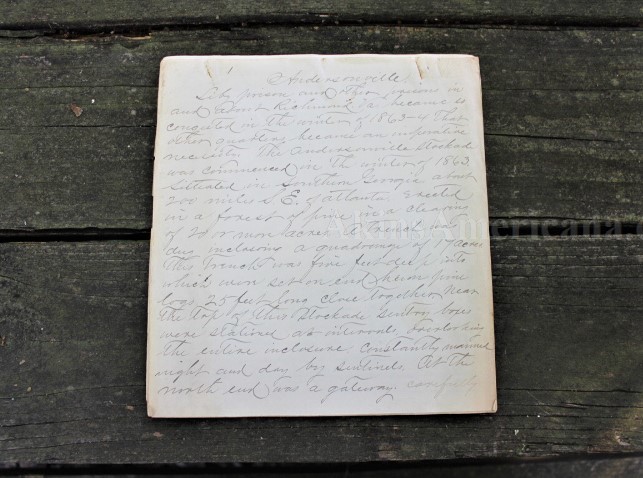 Andersonville
Lib prison and other prisons in
and about Richmond Va. became so
congested in the winter of 1863-4 that
other quarters became an imperative
necessity. The Andersonville Stockade
was commenced in the winter of 1863.
Situated in Southern Georgia about
200 miles S.E. of Atlanta. Erected
in a forest of pine in a clearing
of 20 or more acres. A trench was
dug inclosing a quadrangle of 17 acres
This Trench was five feet deep into
which were set on end hewn pine
logs 25 feet long close together. Near
the top of this stockade sentry boxes
were stationed at intervals, overlooking
the entire inclosure constantly manned
night and day by sentinels. At the
north end was a gateway carefully
Americana.c